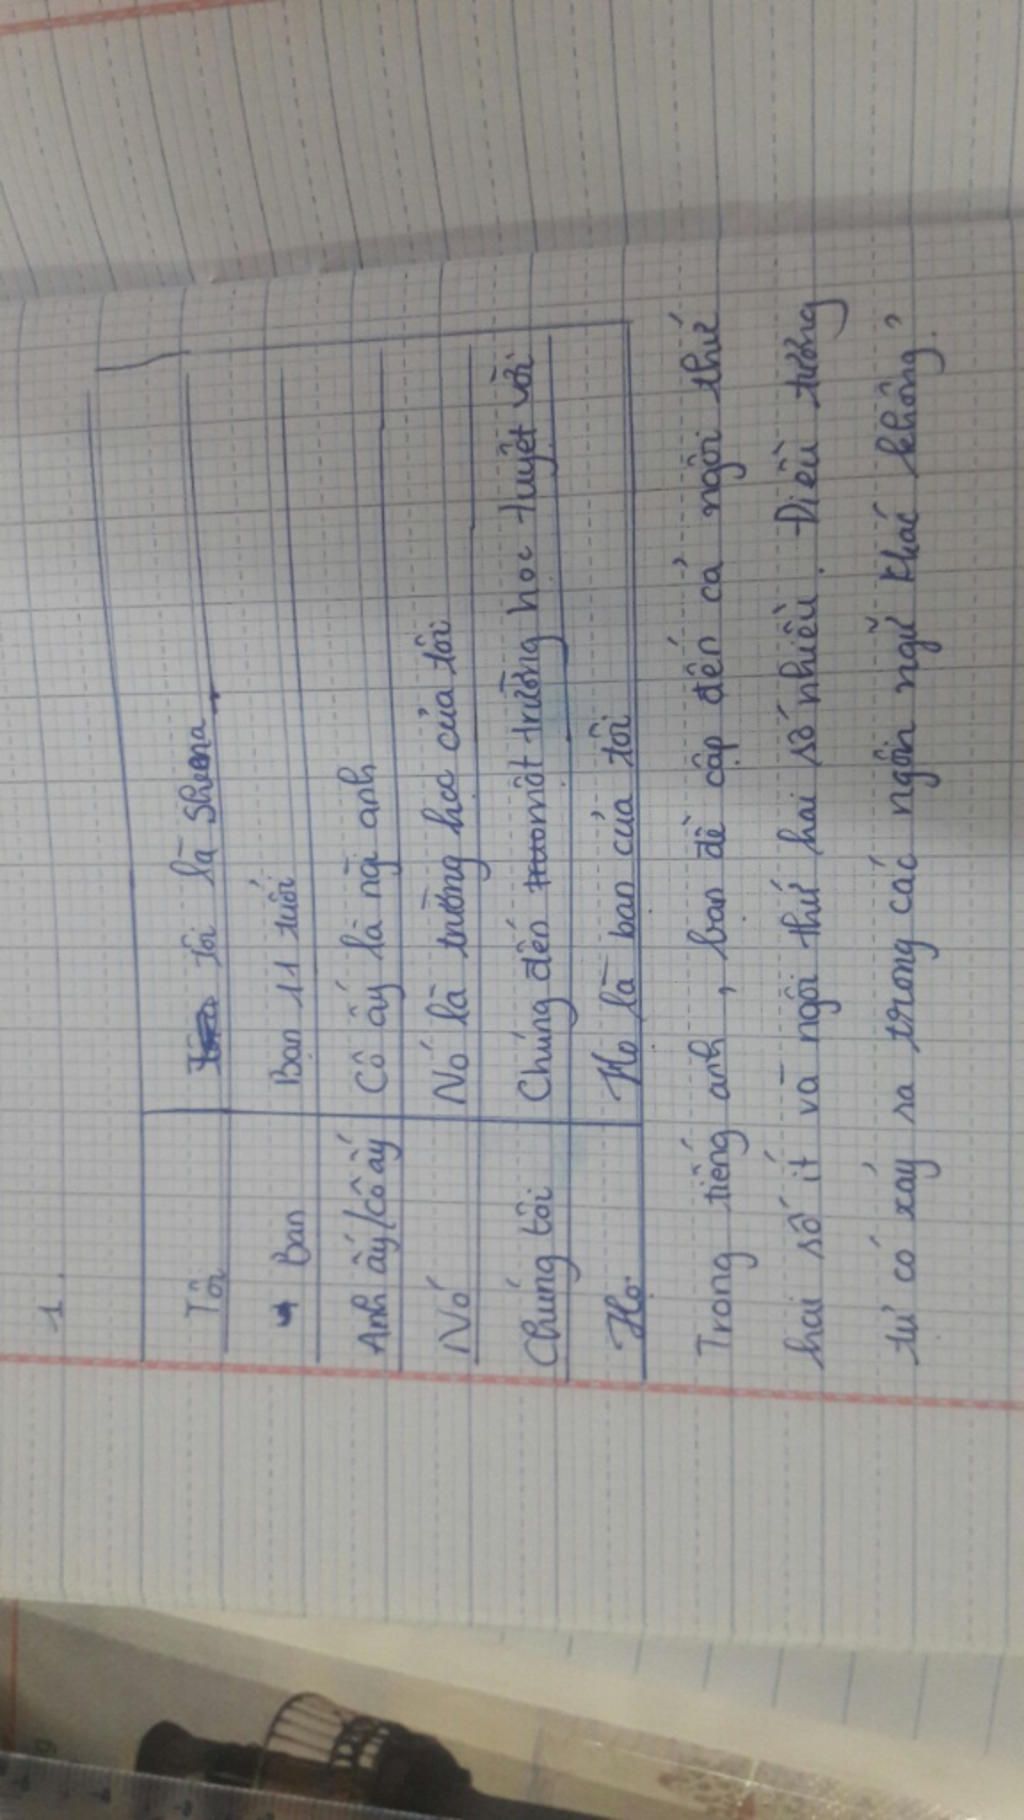 1
Tôi Tôi là Sheena
Bạn Bạn 11 tuổi
Anh ấy/cô ấy Cô ấy là ng anh
Nó Nó là trường học của tôi
Chúng tôi Chúng đến một trường học tuyệt vời
Họ Họ là bạn của tôi
Trong tiếng anh, bạn đề cập đến cả ngôi thứ
hai số ít và ngôi thứ hai số nhiều. Điều tương
tự có xảy ra trong các ngôn ngữ khác không?